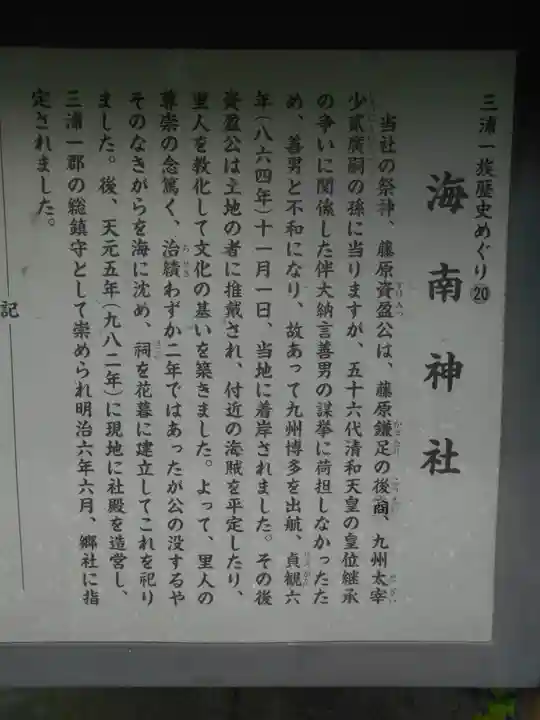 三浦一族歴史めぐり⑳
海南神社
当社の祭神、藤原資盈公は、藤原鎌足の後啇、九州太宰
少貳廣嗣の孫に当りますが、五十六代清和天皇の皇位継承
の争いに関係した伴大納言善男の謀挙に荷担しなかったた
め、善男と不和になり、故あって九州博多を出航、貞観六
年(八六四年)十一月一日、当地に着岸されました。その後
資盈公は土地の者に推戴され、付近の海賊を平定したり、
里人を教化して文化の基いを築きました。よって、里人の
尊崇の念篤く、治績わずか二年ではあったが公の没するや
そのなきがらを海に沈め、祠を花暮に建立してこれを祀り
ました。後、天元五年(九八二年)に現地に社殿を造営し、
三浦一郡の総鎮守として崇められ明治六年六月、郷社に指
定されました。
記